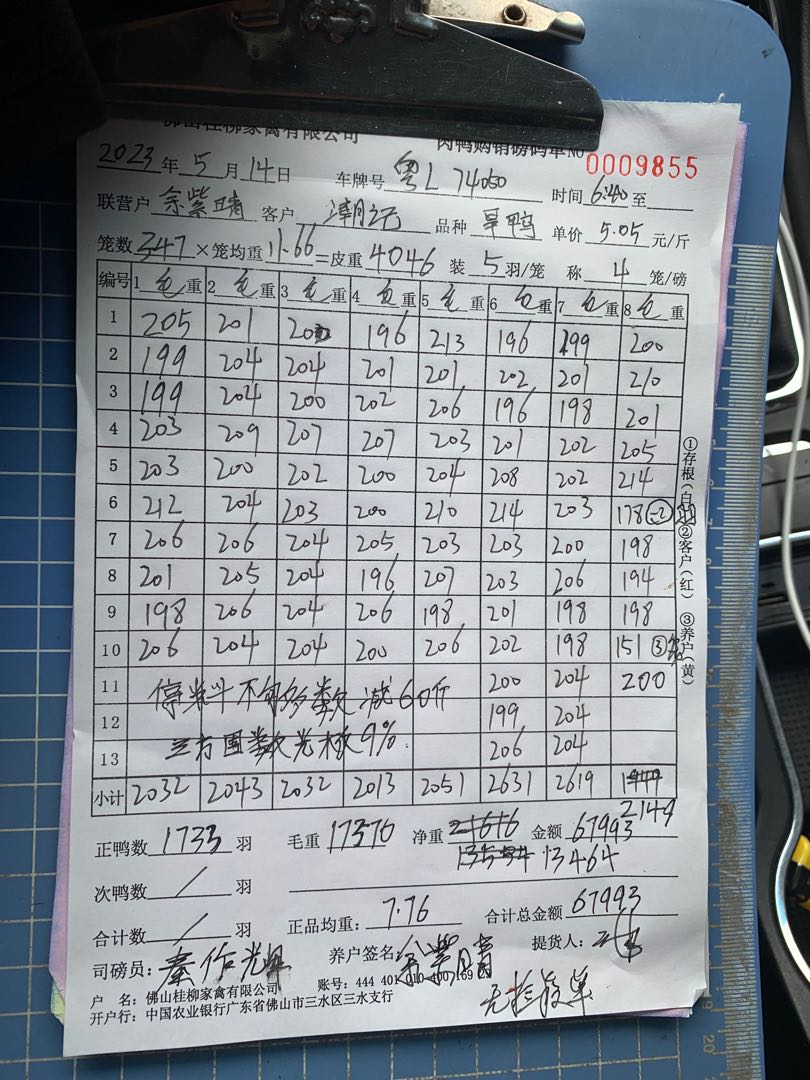 佛山桂柳家禽有限公司 肉鸭购销磅码单 NO 0009855
2023年5月14日 车牌号 粤L 74050 时间 6:40 至
联营户 余紫晴 客户 潮记 品种 旱鸭 单价 5.05 元/斤
笼数 347 ×笼均重 11.66 =皮重 4046 装 5 羽/笼 称 4 笼/磅
编号 1 毛 重 2 毛 重 3 毛 重 4 毛 重 5 毛 重 6 毛 重 7 毛 重 8 毛 重
1 205 201 200 196 213 196 199 200
2 199 204 204 201 201 202 201 210
3 199 204 200 202 206 196 198 201
4 203 209 207 207 203 201 202 205
5 203 200 202 200 204 208 202 214
6 212 204 203 200 210 214 203 178
7 206 206 204 205 203 203 200 198
8 201 205 204 196 207 203 206 194
9 198 206 204 206 198 201 198 198
10 206 204 204 200 206 202 198 151 ③笼
11 200 204 200
12 199 204
13 206 204
减60斤
9%
小计 2032 2043 2032 2013 2051 2631 2619
2149
正鸭数 1733 羽 毛重 17570 净重 金额 67993
13464
次鸭数 / 羽
合计数 / 羽 正品均重: 7.76 合计总金额 67993
司磅员: 秦作辉 养户签名: 余紫晴 提货人:
无检疫单
户 名: 佛山桂柳家禽有限公司 账号: 444 401 010 400 169
开户行: 中国农业银行广东省佛山市三水区三水支行
①存根(白) ②客户(红) ③养户(黄)